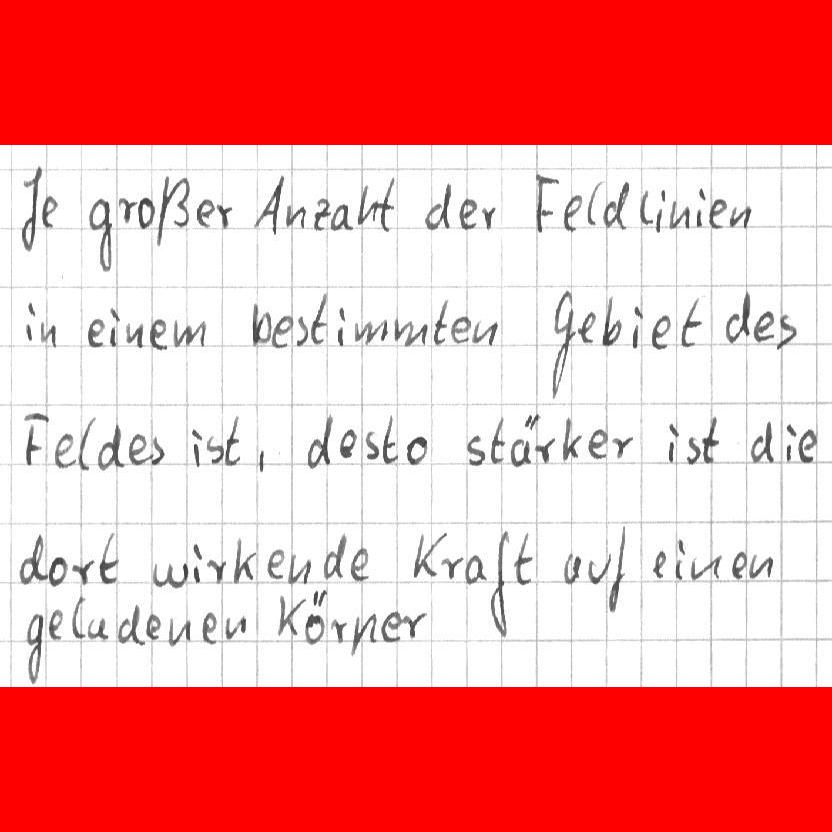 Je großer Anzahl der Feldlinien
in einem bestimmten Gebiet des
Feldes ist, desto stärker ist die
dort wirkende Kraft auf einen
geladenen Körper